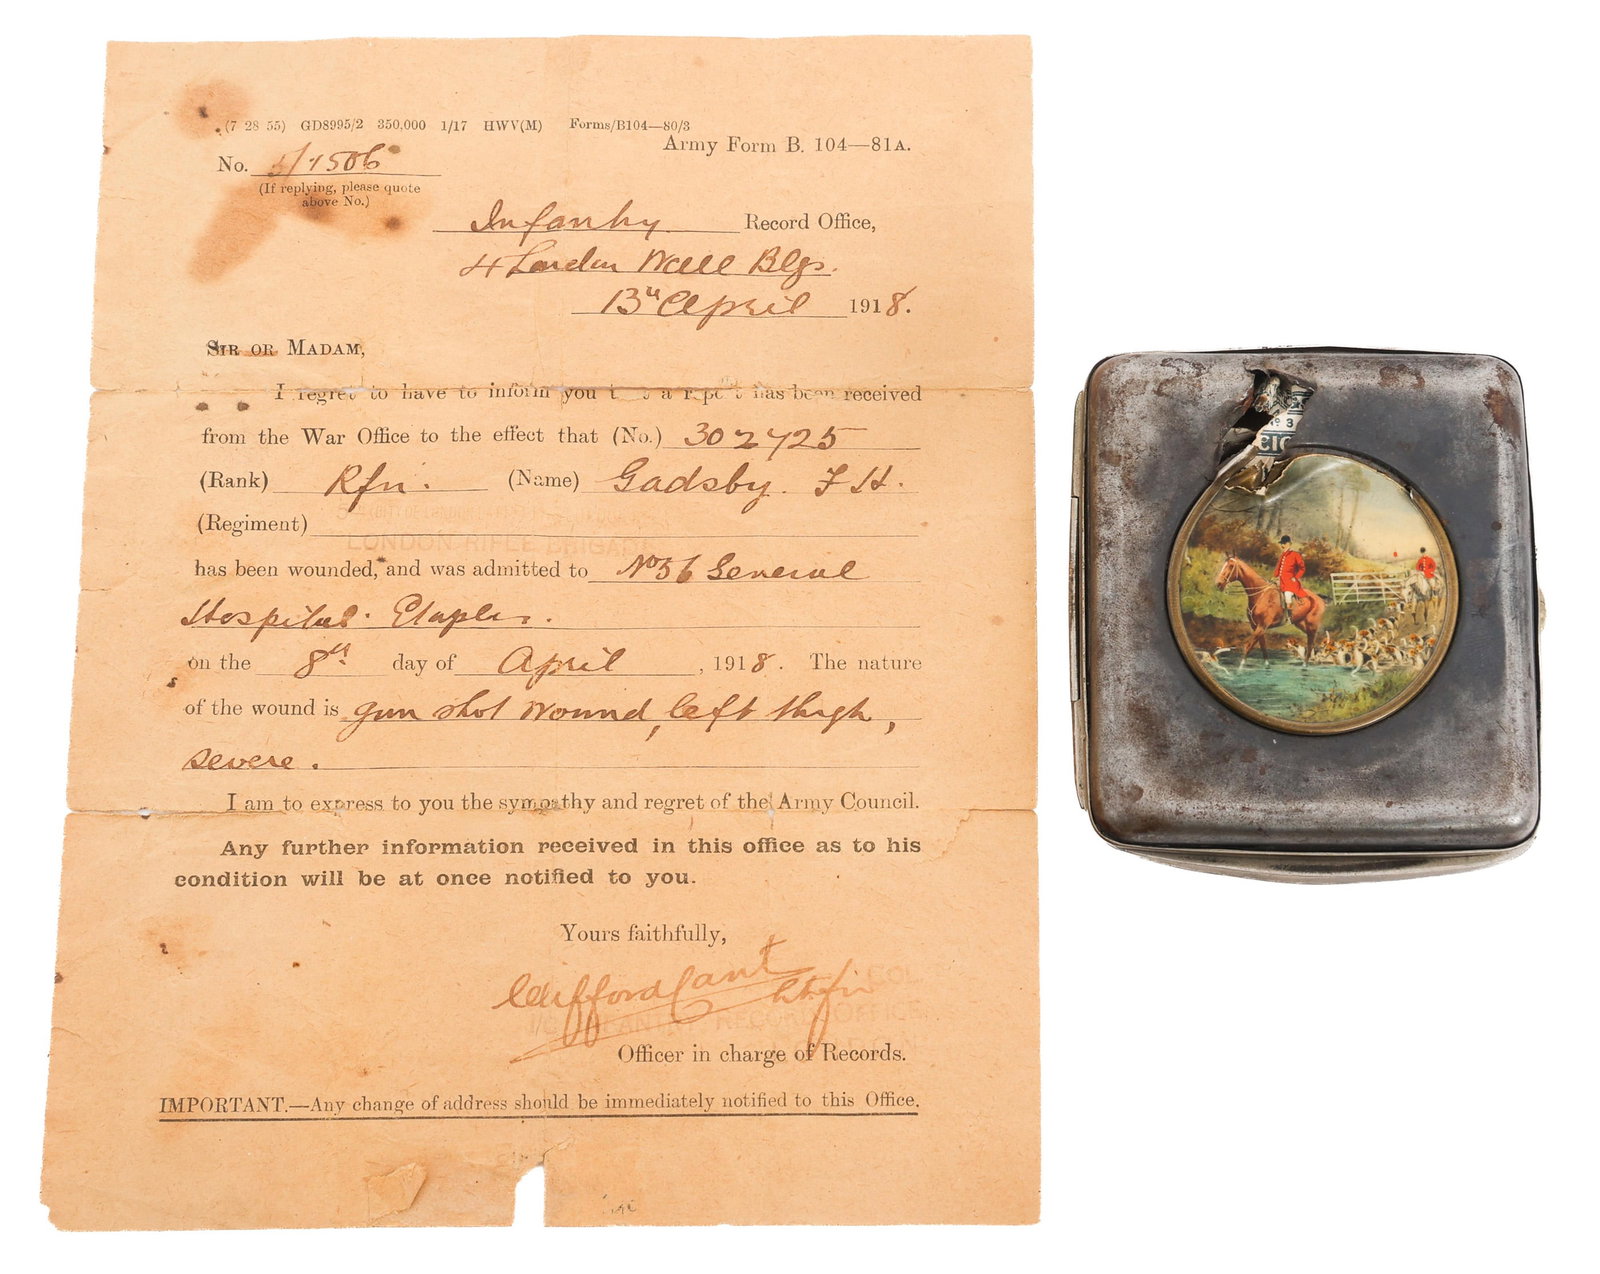 (7 28 55) GD8995/2 350,000 1/17 HWV(M) Forms/B104—80/3
Army Form B. 104—81A.
No. 5/1506
(If replying, please quote
above No.)
Infantry Record Office,
4 London Wall Blgs.
13th April 1918.
SIR OR MADAM,
I regret to have to inform you that a report has been received
from the War Office to the effect that (No.) 302725
(Rank) Rfn. (Name) Gadsby. F H.
(Regiment)
LONDON RIFLE BRIGADE
has been wounded, and was admitted to No 56 General
Hospital. Etaples.
on the 8th day of April, 1918. The nature
of the wound is gun shot wound, left thigh,
severe.
I am to express to you the sympathy and regret of the Army Council.
Any further information received in this office as to his
condition will be at once notified to you.
Yours faithfully,
COL
I/C INFANTRY RECORD OFFICE
LONDON
Officer in charge of Records.
IMPORTANT.—Any change of address should be immediately notified to this Office.
No 3
CIG